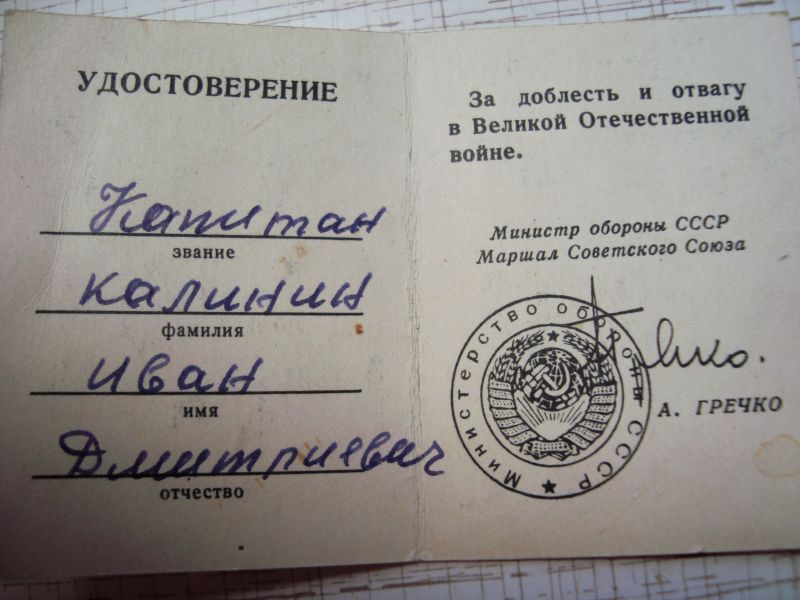 УДОСТОВЕРЕНИЕ
Капитан
звание
Калинин
фамилия
Иван
имя
Дмитриевич
отчество
За доблесть и отвагу
в Великой Отечественной
войне.
Министр обороны СССР
Маршал Советского Союза
Министерство обороны СССР
А. ГРЕЧКО